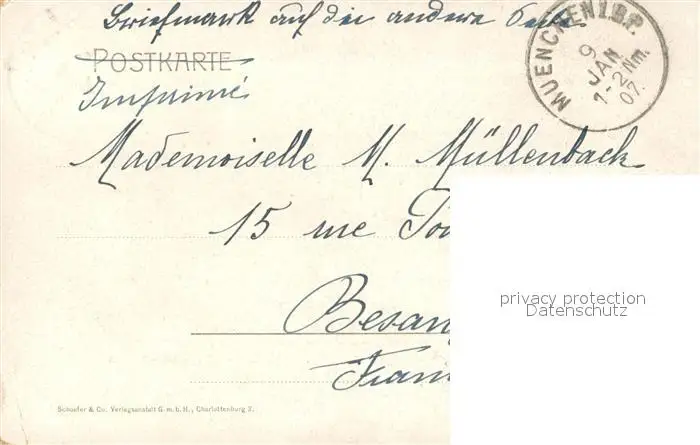 Briefmark auf die andere Seite
POSTKARTE
Imprimé
MUENCHEN 1.B.P.
9 JAN
1-2Nm.
07.
Mademoiselle M. Müllenback
15 rue
Besan
Fran
privacy protection
Datenschutz
Schaefer & Co. Verlagsanstalt G. m. b. H., Charlottenburg 2.